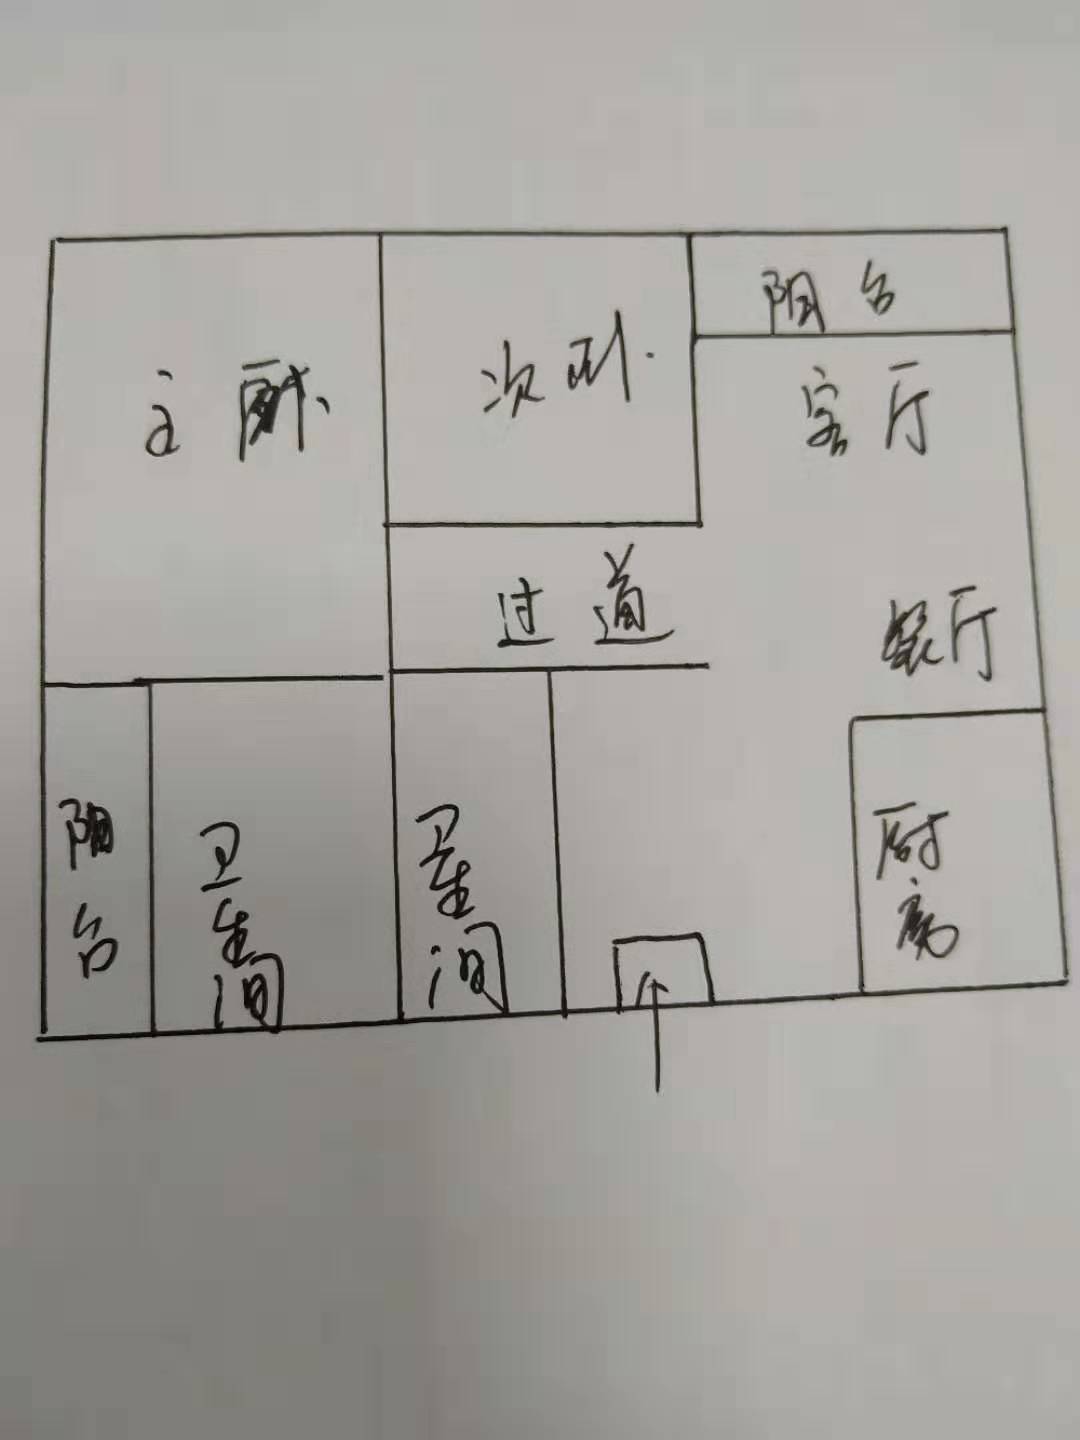 阳台
主卧
次卧
客厅
过道
餐厅
阳台
卫生间
卫生间
厨房